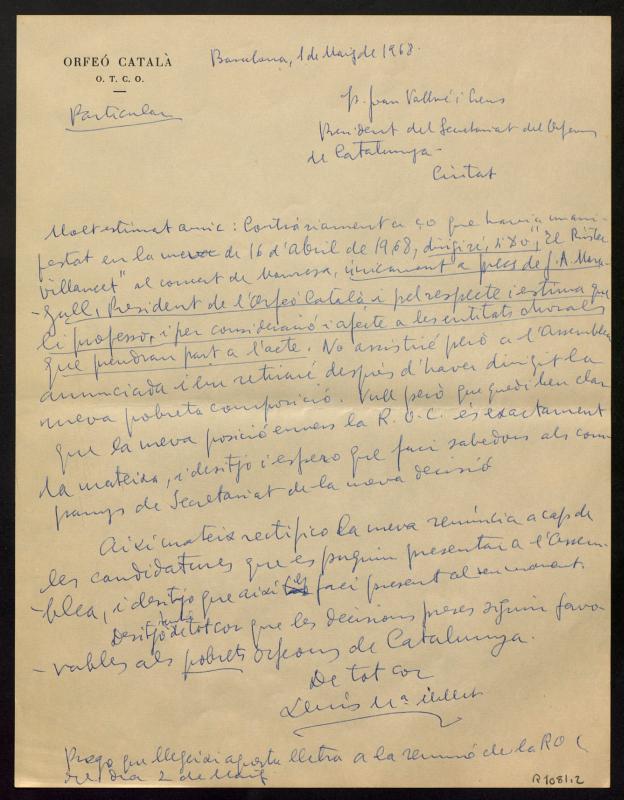 ORFEÓ CATALÀ
O. T. C. O.
Particular
Barcelona, 1 de Maig de 1968.
Sr. Joan Vallvé i Creus
President del Secretariat del Orfeons
de Catalunya -
Ciutat
Molt estimat amic: Contràriament a ço que havia mani-
festat en la meva de 16 d'Abril de 1968, dirigiré, i so, "El
Villancet" al concert de Manresa, únicament a precs de J. A. Mara-
-gall, President de l'Orfeó Català i pel respecte i estima que
li professo, i per consideració i afecte a les entitats chorals
que pendran part a l'acte. No assistiré però a l'Assemblea
anunciada i em retiraré després d'haver dirigit la
meva pobreta composició. Vull però que quedi ben clar
que la meva posició envers la R. O. C. és exactament
la mateixa, i desitjo i espero que faci sabedors als com-
panys de Secretariat de la meva decisió
Així mateix rectifico la meva renúncia a cap de
les candidatures que es puguin presentar a l'Assem-
-blea, i desitjo que així es faci present al seu moment.
Desitjo de tot cor que les decisions preses siguin favo-
-rables als pobrets orfeons de Catalunya.
De tot cor
Lluís Mª Millet
Prego que llegeixi aquesta lletra a la reunió de la ROC
del dia 2 de Maig
R 1081,2